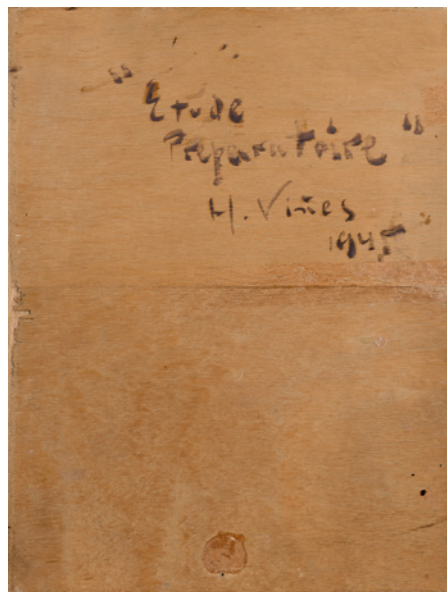 "Etude
Préparatoire"
H. Viñes
1945